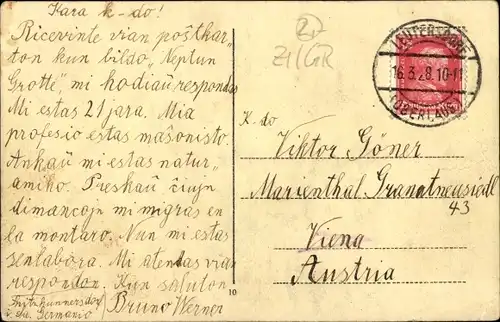 Kara k-do!
Ricevinte vian poŝtkar-
ton kun bildo „Neptun
Grotte", mi hodiaŭ respondas
Mi estas 21 jara. Mia
profesio estas maŝonisto.
Ankaŭ mi estas natur-
amiko. Preskaŭ ĉiujn
dimancojn mi migras en
la montaro. Nun mi estas
senlabora. Mi atendas vian
respondon. Kun saluton
Bruno Werner
Kunnersdorf
Germanio
10
2
Z1/GR
LEUTERSDORF
16.3.28.10-11
(OBERLAUS.)
K-do
Viktor Göner
Marienthal. Gramatneusiedl
43
Viena
Austria